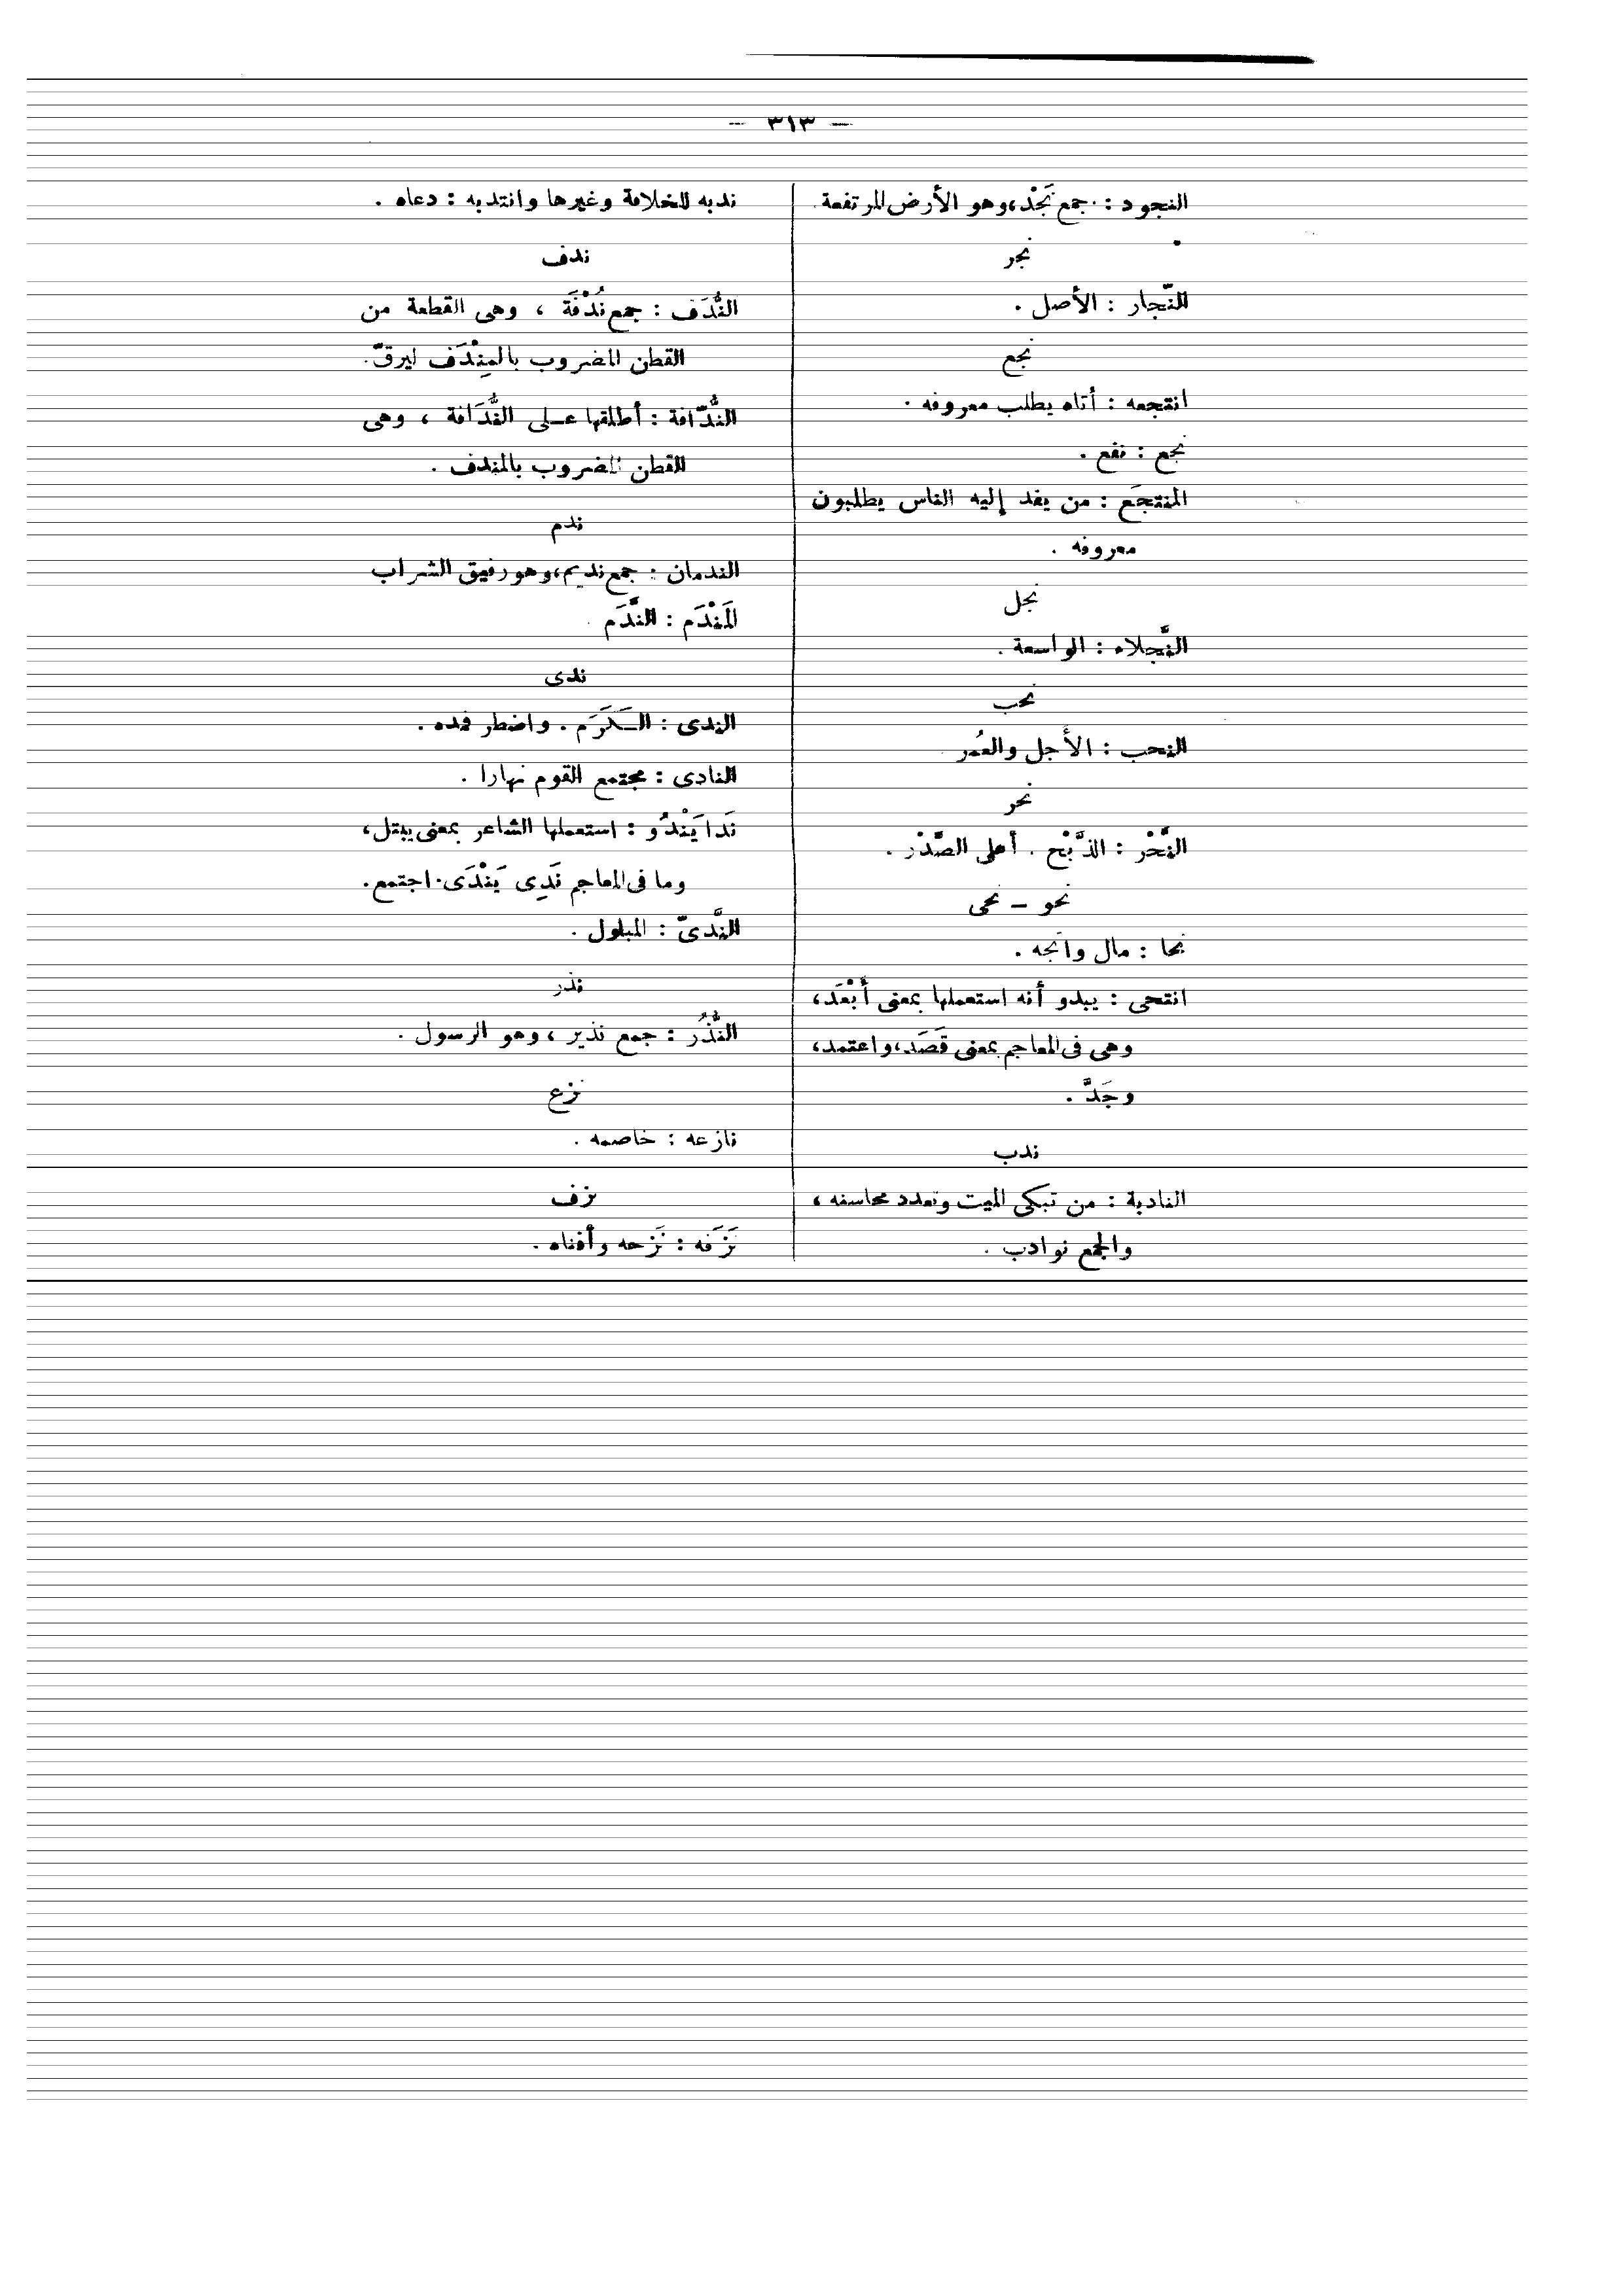 — ٣١٣ —
النجود : جمع نَجْد، وهو الأرض المرتفعة
.
نجر
النِّجار : الأصل .
نجع
انتجعه : أتاه يطلب معروفه .
نجع : نفع .
المنتجَع : من يفد إليه الناس يطلبون
معروفه .
نجل
النَّجلاء : الواسعة .
نحب
النحب : الأَجل والعُمر
نحر
النَّحْر : الذَّبْح . أعلى الصَّدْر .
نحو – نحى
نحا : مال واتجه .
انتحى : يبدو أنه استعملها بمعنى أَبْعَد،
وهى فى المعاجم بمعنى قَصَد، واعتمد،
وجَدَّ .
ندب
النادبة : من تبكى الميت وتعدد محاسنه ،
والجمع نوادب .
ندبه للخلافة وغيرها وانتدبه : دعاه .
ندف
النُّدَف : جمع نُدْفَة ، وهى القطعة من
القطن المضروب بالمِنْدَف ليرقّ.
النُّدّافة : أطلقها على النُّدَافة ، وهى
القطن المضروب بالمندف .
ندم
الندمان : جمع نديم، وهو رفيق الشراب
المَنْدَم : النَّدَم
ندى
الندى : الكَرَم . واضطر فمده .
النادى : مجتمع القوم نهارا .
نَدا يَنْدُو : استعملها الشاعر بمعنى يبتل،
وما فى المعاجم نَدِى يَنْدَى. اجتمع.
النَّدىّ : المبلول .
نذر
النُّذُر : جمع نذير ، وهو الرسول .
نزع
نازعه : خاصمه .
نزف
نَزَفه : نَزحه وأفناه .